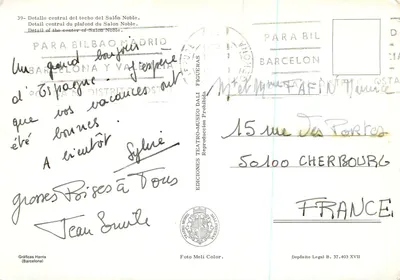 39.- Detalle central del techo del Salón Noble.
Détail central du plafond du Salon Noble.
Detail of the center of Salon Noble.
PARA BILBAO, MADRID
BARCELONA Y VA
PARA BIL
BARCELON
Un grand bonjour
d'Espagne. J'espère
que vos vacances ont
été bonnes.
A bientôt Sylvie
grosses Bises à Tous
EDICIONES TEATRO-MUSEO DALI FIGUERAS
Reproduction Prohibida
Mr et Mme
15 rue Des Portes
50100 CHERBOURG
FRANCE
Gráficas Harris
(Barcelona)
Foto Meli Color.
Depósito Legal B. 37.403 XVII